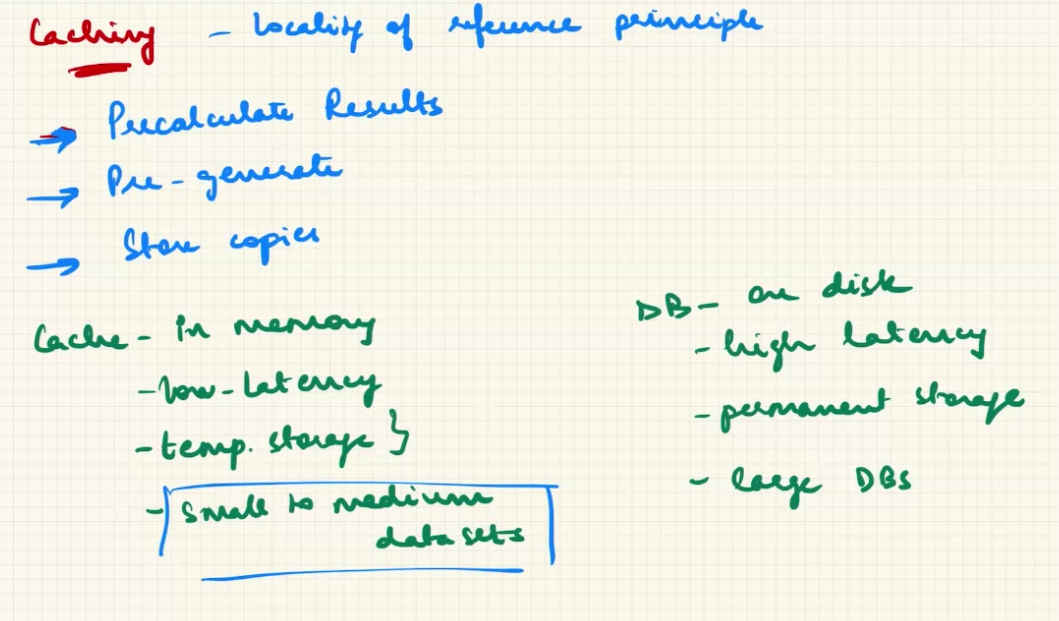 Caching - Locality of reference principle
→ Precalculate Results
→ Pre-generate
→ Store copies
Cache - in memory
- low-latency
- temp. storage }
- Small to medium
data sets
DB - on disk
- high latency
- permanent storage
- large DBs